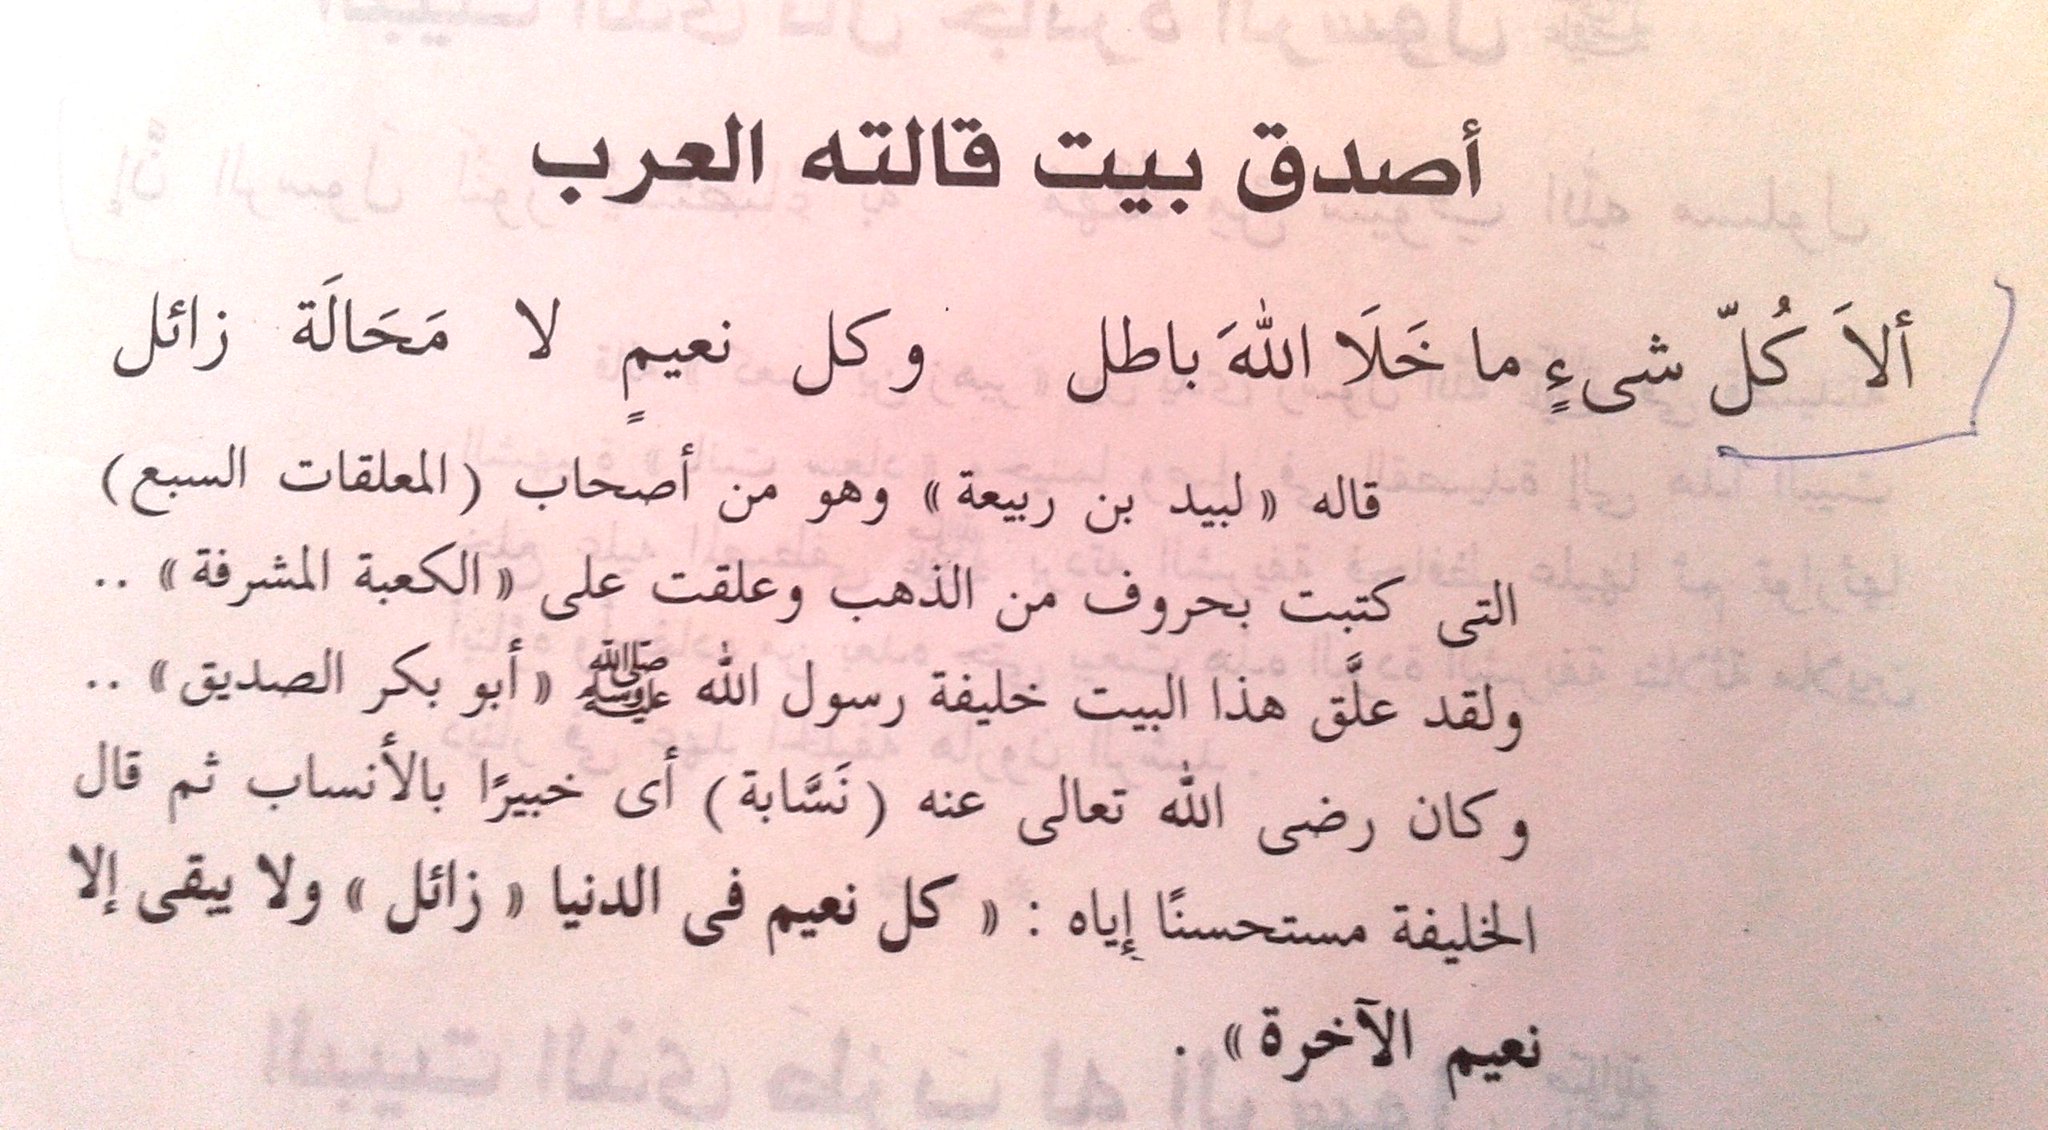 أصدق بيت قالته العرب
ألاَ كُلّ شىءٍ ما خَلَا اللهَ باطل وكل نعيمٍ لا مَحَالَة زائل
قاله «لبيد بن ربيعة» وهو من أصحاب (المعلقات السبع)
التى كتبت بحروف من الذهب وعلقت على «الكعبة المشرفة» ..
ولقد علَّق هذا البيت خليفة رسول الله ﷺ «أبو بكر الصديق» ..
وكان رضى الله تعالى عنه (نَسَّابة) أى خبيرًا بالأنساب ثم قال
الخليفة مستحسنًا إياه : « كل نعيم فى الدنيا « زائل » ولا يبقى إلا
نعيم الآخرة » .